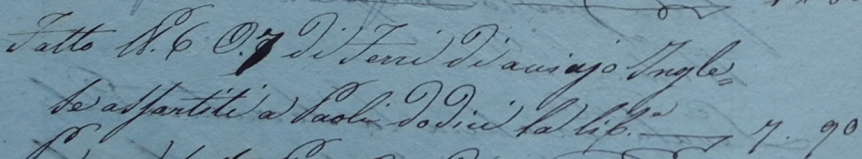 Fatto N. 6 O. 7 di Ferri di acciajo Ingle=
se assortiti a Paoli dodici la lib.ª — 7. 90